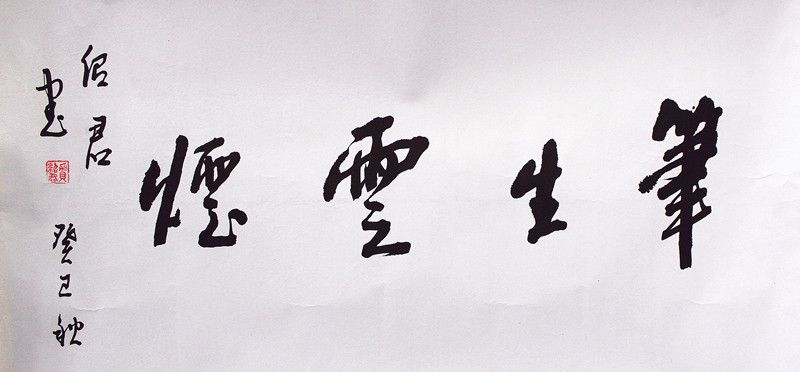 筆生雲煙
癸巳秋
紹君
書